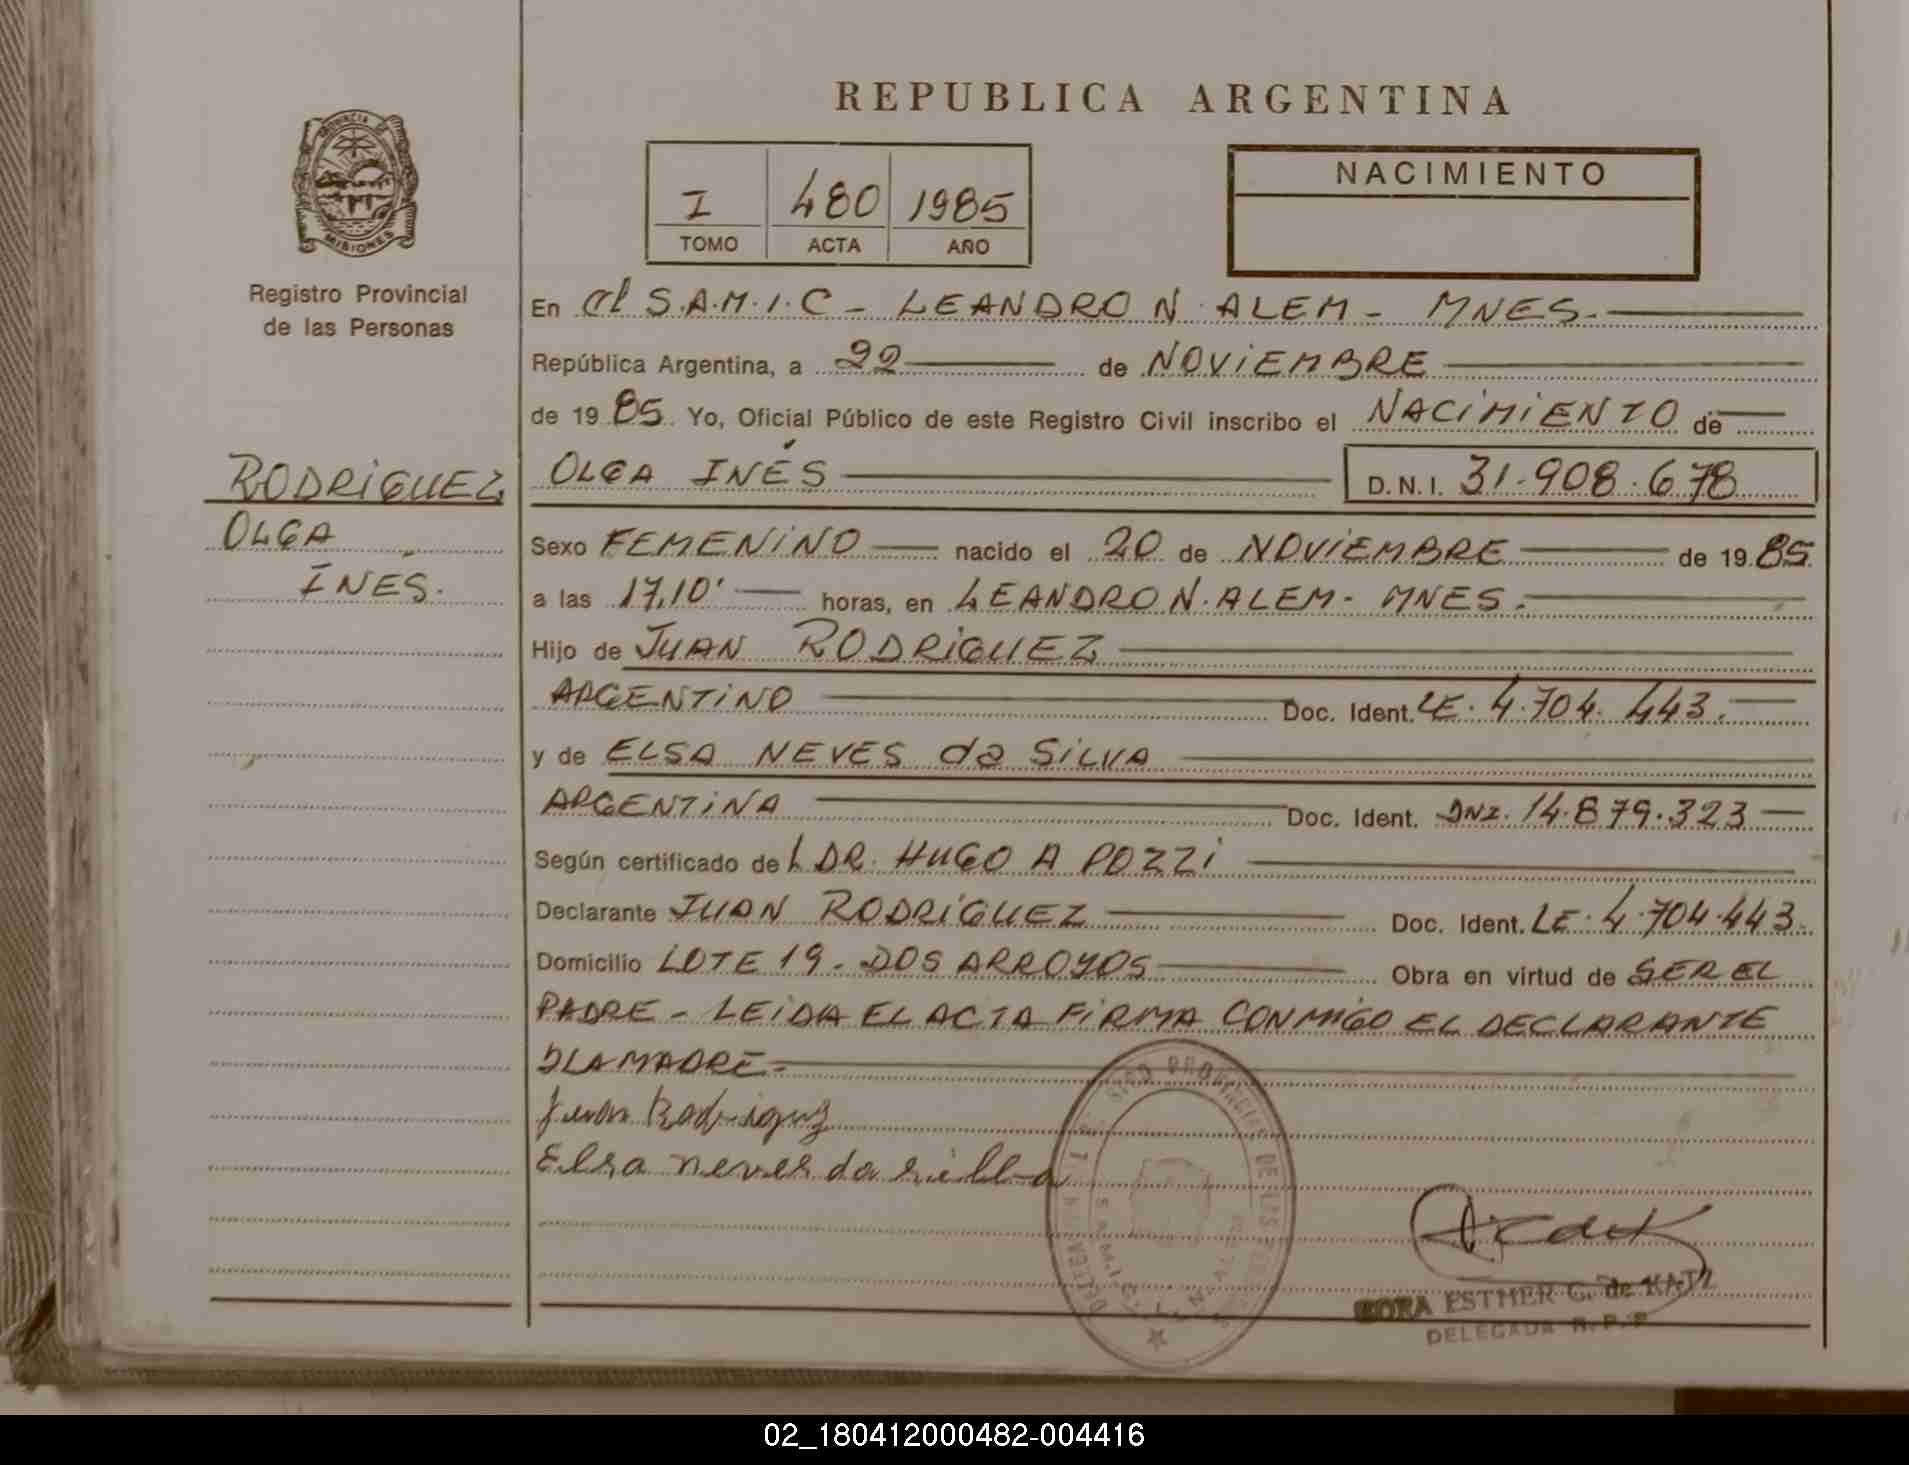 REPUBLICA ARGENTINA
PROVINCIA DE
MISIONES
Registro Provincial
de las Personas
I 480 1985
TOMO ACTA AÑO
NACIMIENTO
En el S.A.M.I.C - LEANDRO N. ALEM - MNES.
República Argentina, a 22 de NOVIEMBRE
de 1985. Yo, Oficial Público de este Registro Civil inscribo el NACIMIENTO de
RODRIGUEZ
OLGA
INÉS.
OLGA INÉS D.N.I. 31.908.678
Sexo FEMENINO nacido el 20 de NOVIEMBRE de 1985
a las 17,10' horas, en LEANDRO N. ALEM - MNES.
Hijo de JUAN RODRIGUEZ
ARGENTINO Doc. Ident. LE. 4.704.443.
y de ELSA NEVES da SILVA
ARGENTINA Doc. Ident. DNI. 14.879.323
Según certificado del DR. HUGO A POZZI
Declarante JUAN RODRIGUEZ Doc. Ident. LE. 4.704.443.
Domicilio LOTE 19 - DOS ARROYOS Obra en virtud de SER EL
PADRE - LEIDA EL ACTA FIRMA CONMIGO EL DECLARANTE
Y LA MADRE -
Juan Rodriguz
Elsa neves da silba
ESTHER G. de KATZ
DELEGADA R.P.P
02_180412000482-004416